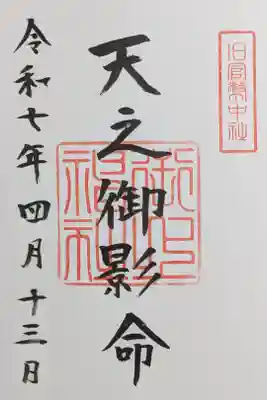 旧官幣中社
天之御影命
令和七年四月十三日